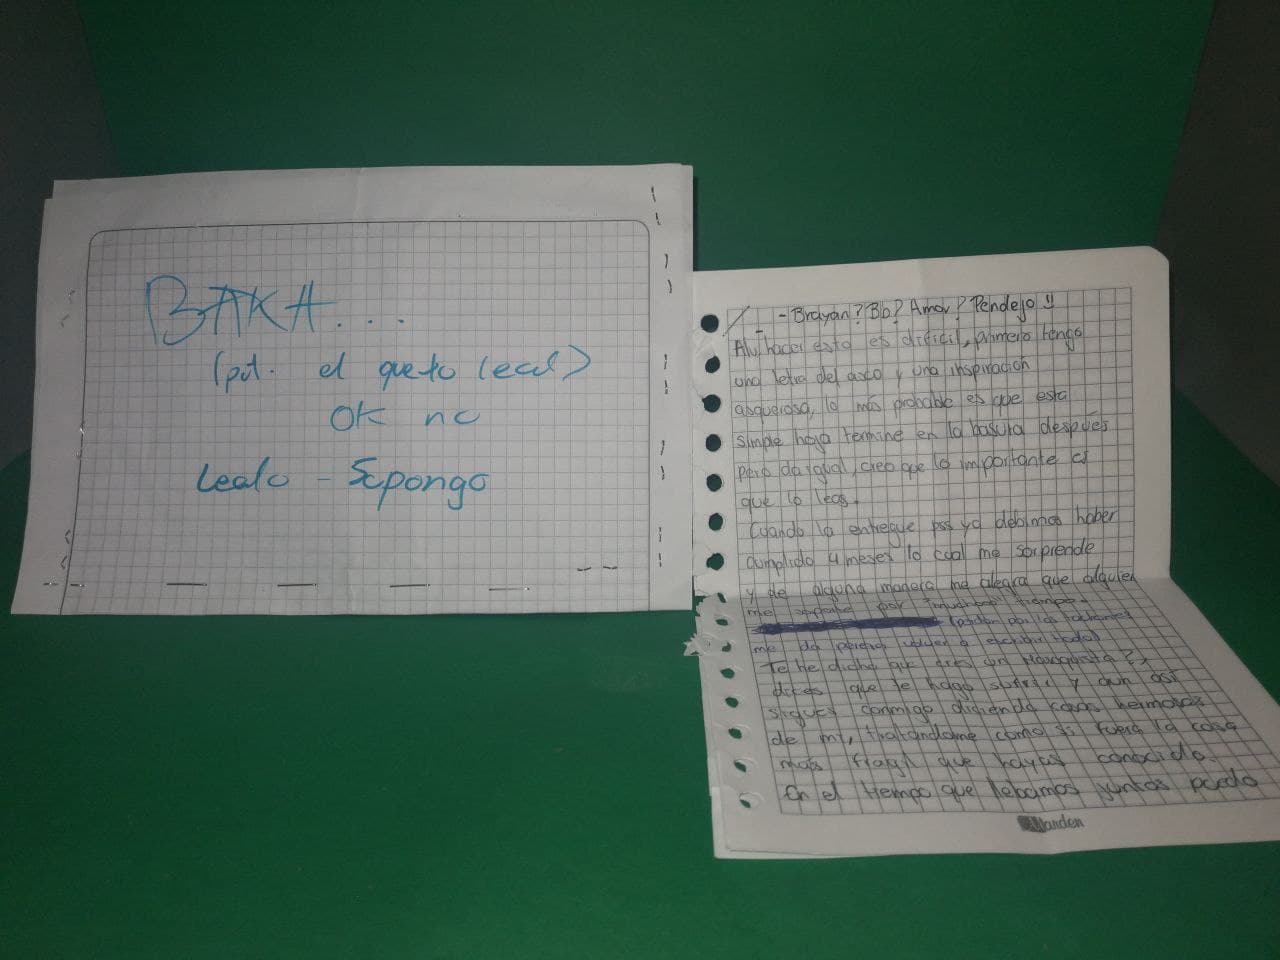 BAKA...
(pd. el que to lea)
OK no
Lealo - Supongo
- Brayan? Bb? Amor? Pendejo!!
Alv, hacer esto es dificil, primero tengo
una letra del asco y una inspiracion
asquerosa, lo más probable es que esta
simple hoja termine en la basura después
pero da igual, creo que lo importante es
que lo leas.
Cuando la entregue pss ya debimos haber
cumplido 4 meses lo cual me sorprende
y de alguna manera me alegra que alguien
me soporte por mucho tiempo.
(perdon por los
me da pereza volver a escribir todo)
Te he dicho que eres un Masoquista?,
dices que te hago sufrir y aun asi
sigues conmigo diciendo cosas hermosas
de mi, tratandome como si fuera la cosa
mas fragil que hayas conocido.
En el tiempo que llebamos juntos puedo